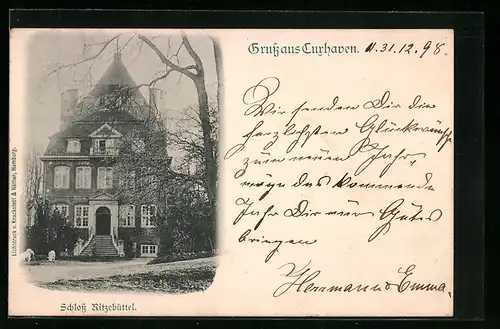 Gruß aus Cuxhaven. d. 31. 12. 98.
Wir senden Dir die
herzlichsten Glückwünsche
zum neuen Jahr,
möge das kommende
Jahr Dir nur Gutes
bringen
Herrmann & Emma.
Lichtdruck v. Knackstedt & Näther, Hamburg.
Schloß Ritzebüttel.